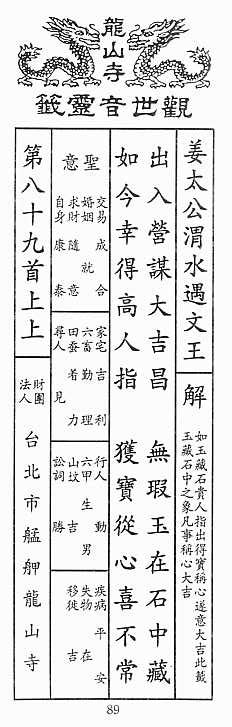 龍山寺
觀世音靈籤
姜太公渭水遇文王
解
如玉藏石貴人指出得寶稱心遂意大吉此籤
玉藏石中之象凡事稱心大吉
出入營謀大吉昌 無瑕玉在石中藏
如今幸得高人指 獲寶從心喜不常
聖意
交易 成合
婚姻 就
求財 隨意
自身 康泰
家宅 吉利
六畜 勤理
田蚕 者力
尋人 見
行人 動
六甲 生男
山坟 吉
訟詞 勝
疾病 平安
失物 在
移徙 吉
第八十九首上上
財團
法人
台北市艋舺龍山寺
89